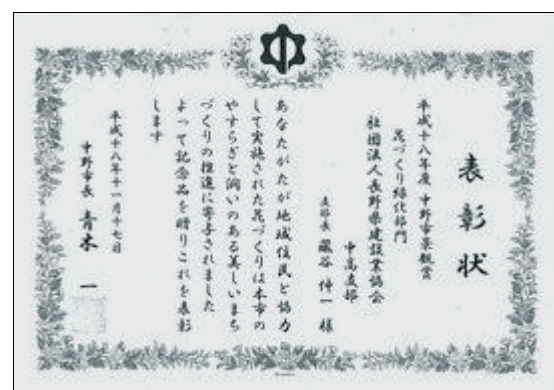 表彰状
平成十八年度 中野市景観賞
花づくり緑化部門
社団法人長野県建設業協会
中高支部
支部長 蔵谷伸一様
あなたがたが地域住民と協力
して実施された花づくりは本市の
やすらぎと潤いのある美しいまち
づくりの推進に寄与されました
よって記念品を贈りこれを表彰
します
平成十八年十一月十七日
中野市長 青木一